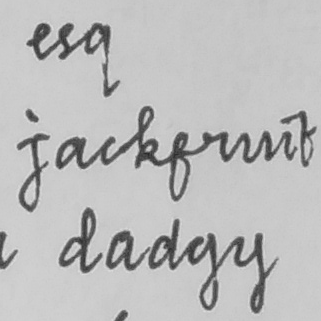 esq
jackfruit
dadgy